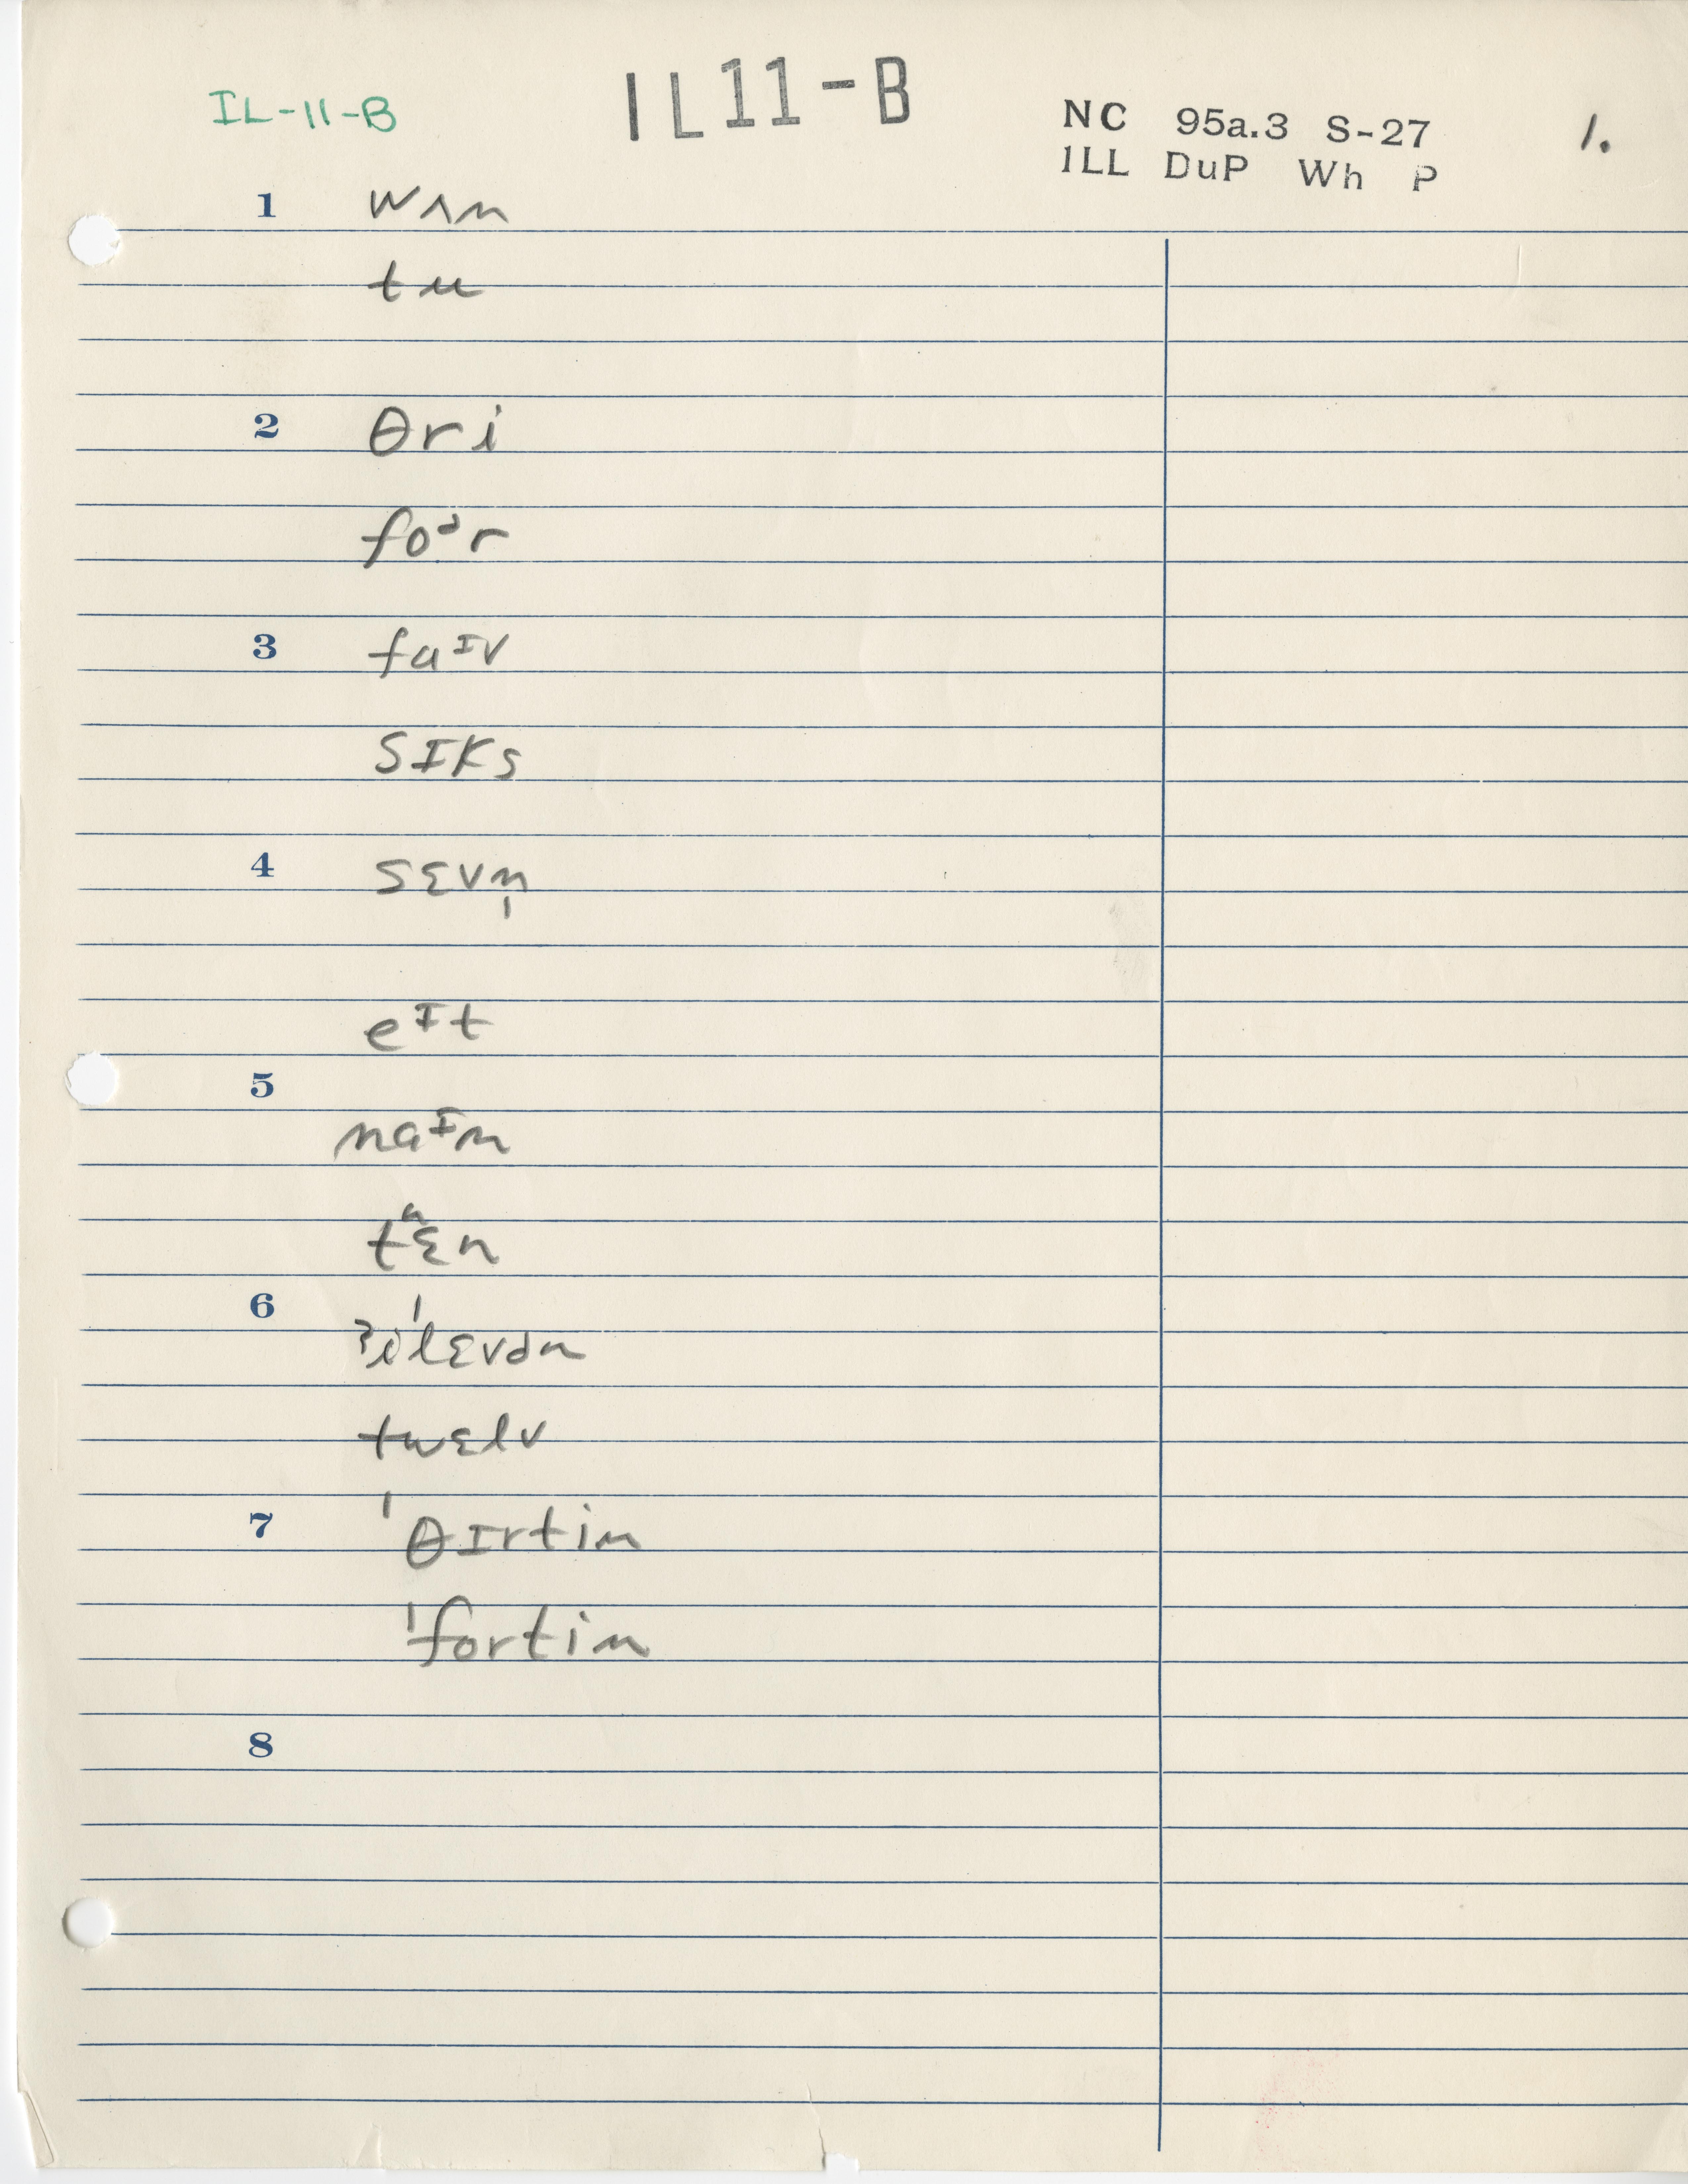 IL-11-B IL11-B NC 95a.3 S-27 1.
ILL DuP Wh P
1 wʌn
tu
2 θri
foᵊr
3 faᶦv
sɪks
4 sɛvn̩
eᶦt
5
naᶦn
tʰɛn
6 ʔiˈlɛvən
twɛlv
7 ˈθɪrtin
ˈfortin
8